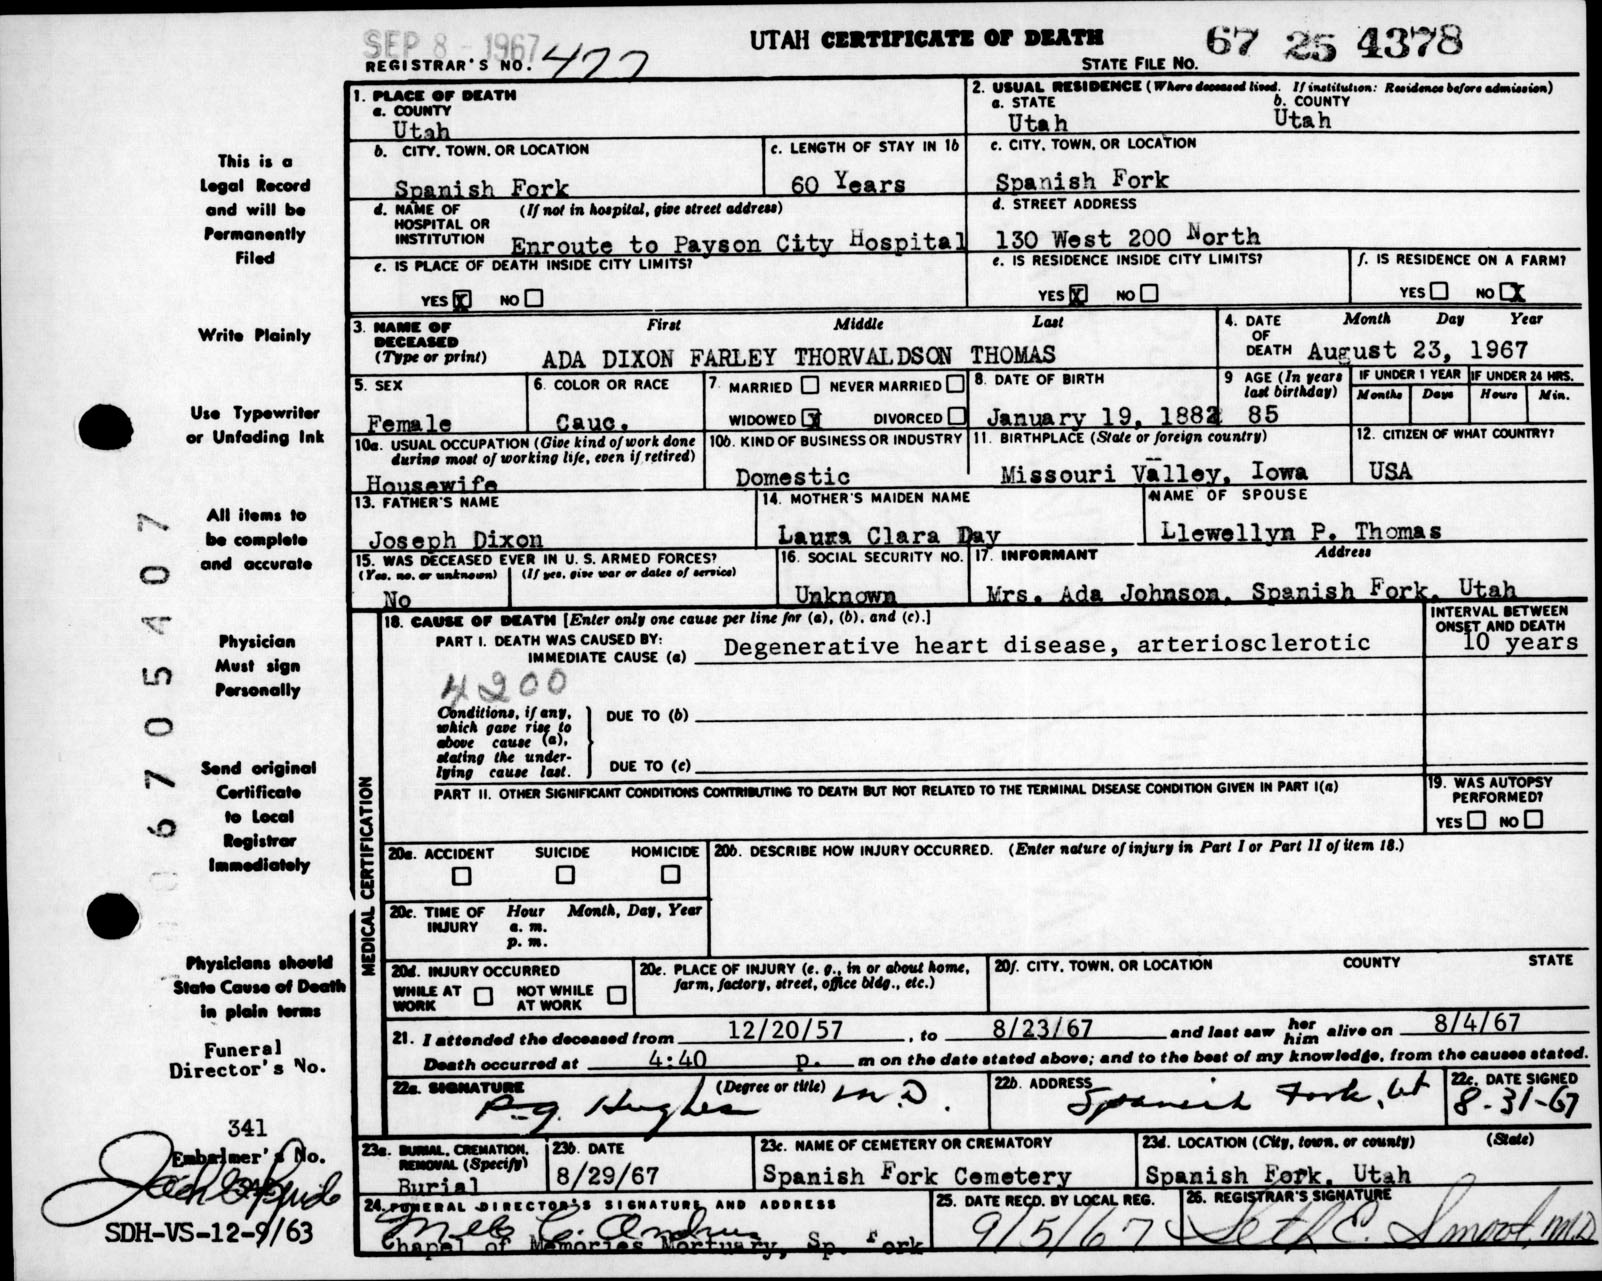 SEP 8 - 1967
UTAH CERTIFICATE OF DEATH
67 25 4378
REGISTRAR'S NO. 477
STATE FILE NO.
1. PLACE OF DEATH
a. COUNTY
Utah
2. USUAL RESIDENCE (Where deceased lived. If institution: Residence before admission)
a. STATE
Utah
b. COUNTY
Utah
b. CITY, TOWN, OR LOCATION
Spanish Fork
c. LENGTH OF STAY IN 1b
60 Years
c. CITY, TOWN, OR LOCATION
Spanish Fork
d. NAME OF HOSPITAL OR INSTITUTION
(If not in hospital, give street address)
Enroute to Payson City Hospital
d. STREET ADDRESS
130 West 200 North
e. IS PLACE OF DEATH INSIDE CITY LIMITS?
YES X NO
e. IS RESIDENCE INSIDE CITY LIMITS?
YES X NO
f. IS RESIDENCE ON A FARM?
YES NO X
3. NAME OF DECEASED
(Type or print)
First Middle Last
ADA DIXON FARLEY THORVALDSON THOMAS
4. DATE OF DEATH
Month Day Year
August 23, 1967
5. SEX
Female
6. COLOR OR RACE
Cauc.
7. MARRIED NEVER MARRIED
WIDOWED X DIVORCED
8. DATE OF BIRTH
January 19, 1882
9 AGE (In years last birthday)
85
IF UNDER 1 YEAR
Months Days
IF UNDER 24 HRS.
Hours Min.
10a. USUAL OCCUPATION (Give kind of work done during most of working life, even if retired)
Housewife
10b. KIND OF BUSINESS OR INDUSTRY
Domestic
11. BIRTHPLACE (State or foreign country)
Missouri Valley, Iowa
12. CITIZEN OF WHAT COUNTRY?
USA
13. FATHER'S NAME
Joseph Dixon
14. MOTHER'S MAIDEN NAME
Laura Clara Day
NAME OF SPOUSE
Llewellyn P. Thomas
15. WAS DECEASED EVER IN U. S. ARMED FORCES?
(Yes, no, or unknown) (If yes, give war or dates of service)
No
16. SOCIAL SECURITY NO.
Unknown
17. INFORMANT Address
Mrs. Ada Johnson, Spanish Fork, Utah
MEDICAL CERTIFICATION
18. CAUSE OF DEATH [Enter only one cause per line for (a), (b), and (c).]
PART I. DEATH WAS CAUSED BY:
IMMEDIATE CAUSE (a)
Degenerative heart disease, arteriosclerotic
INTERVAL BETWEEN ONSET AND DEATH
10 years
4200
Conditions, if any, which gave rise to above cause (a), stating the underlying cause last.
DUE TO (b)
DUE TO (c)
PART II. OTHER SIGNIFICANT CONDITIONS CONTRIBUTING TO DEATH BUT NOT RELATED TO THE TERMINAL DISEASE CONDITION GIVEN IN PART I(a)
19. WAS AUTOPSY PERFORMED?
YES NO
20a. ACCIDENT SUICIDE HOMICIDE
20b. DESCRIBE HOW INJURY OCCURRED. (Enter nature of injury in Part I or Part II of item 18.)
20c. TIME OF INJURY
Hour Month, Day, Year
a. m.
p. m.
20d. INJURY OCCURRED
WHILE AT WORK NOT WHILE AT WORK
20e. PLACE OF INJURY (e. g., in or about home, farm, factory, street, office bldg., etc.)
20f. CITY, TOWN, OR LOCATION COUNTY STATE
21. I attended the deceased from 12/20/57, to 8/23/67 and last saw her him alive on 8/4/67
Death occurred at 4:40 p. m on the date stated above; and to the best of my knowledge, from the causes stated.
22a. SIGNATURE (Degree or title)
Hughes M.D.
22b. ADDRESS
Spanish Fork, Ut
22c. DATE SIGNED
8-31-67
23a. BURIAL, CREMATION, REMOVAL (Specify)
Burial
23b. DATE
8/29/67
23c. NAME OF CEMETERY OR CREMATORY
Spanish Fork Cemetery
23d. LOCATION (City, town, or county) (State)
Spanish Fork, Utah
24. FUNERAL DIRECTOR'S SIGNATURE AND ADDRESS
Chapel of Memories Mortuary, Sp. Fork
25. DATE RECD. BY LOCAL REG.
9/5/67
26. REGISTRAR'S SIGNATURE
Seth E. Smoot, M.D.
This is a
Legal Record
and will be
Permanently
Filed
Write Plainly
Use Typewriter
or Unfading Ink
All items to
be complete
and accurate
Physician
Must sign
Personally
Send original
Certificate
to Local
Registrar
Immediately
Physicians should
State Cause of Death
in plain terms
Funeral
Director's No.
341
Embalmer's No.
SDH-VS-12-9/63
0 6 7 0 5 4 0 7